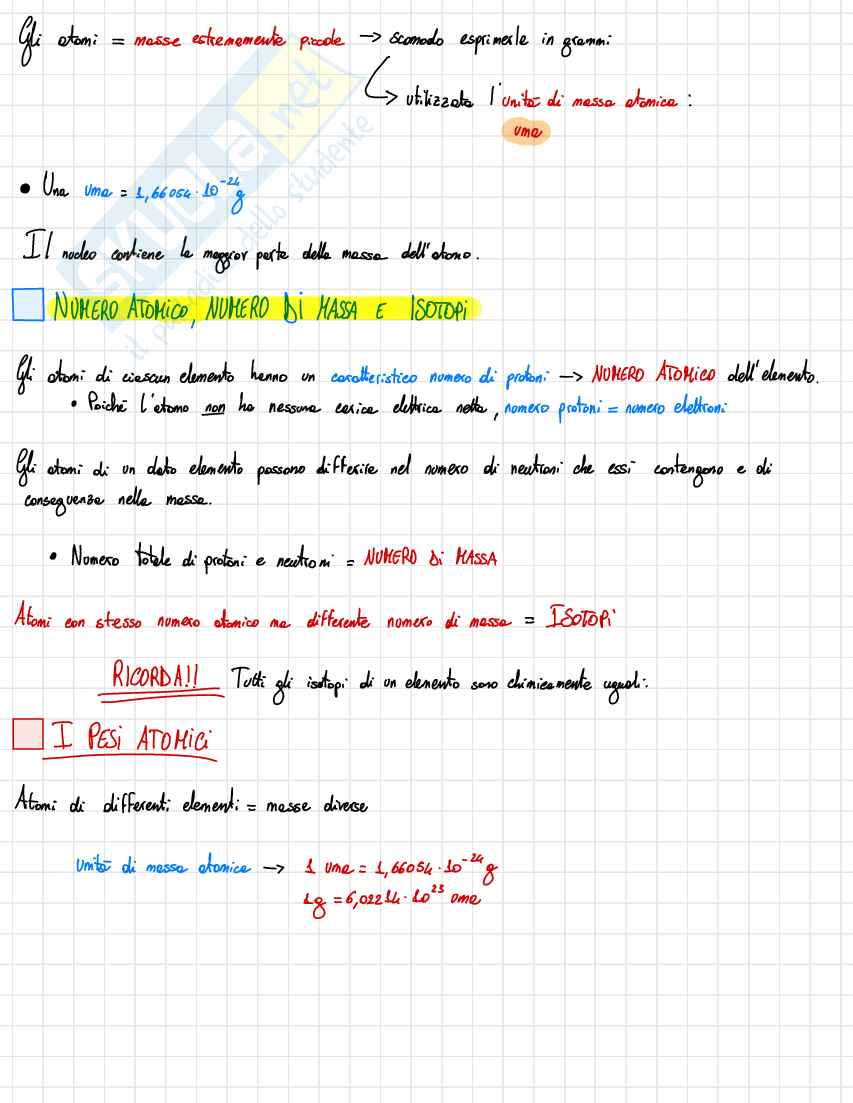 Gli atomi = masse estremamente piccole → scomodo esprimerle in grammi
↳ utilizzata l'unità di massa atomica :
uma
• Una uma = 1,66054·10⁻²⁴g
Il nucleo contiene la maggior parte della massa dell'atomo.
NUMERO ATOMICO, NUMERO Di MASSA E ISOTOPi
Gli atomi di ciascun elemento hanno un caratteristico numero di protoni → NUMERO ATOMICO dell'elemento.
• Poiché l'atomo non ha nessuna carica elettrica netta, numero protoni = numero elettroni
Gli atomi di un dato elemento possono differire nel numero di neutroni che essi contengono e di
conseguenza nella massa.
• Numero totale di protoni e neutroni = NUMERO Di MASSA
Atomi con stesso numero atomico ma differente numero di massa = ISOTOPi
RICORDA!! Tutti gli isotopi di un elemento sono chimicamente uguali.
I PESi ATOMICi
Atomi di differenti elementi = masse diverse
unità di massa atomica → 1 uma = 1,66054·10⁻²⁴g
1g = 6,02214·10²³ uma
SKUOLA.net
il paradiso dello studente